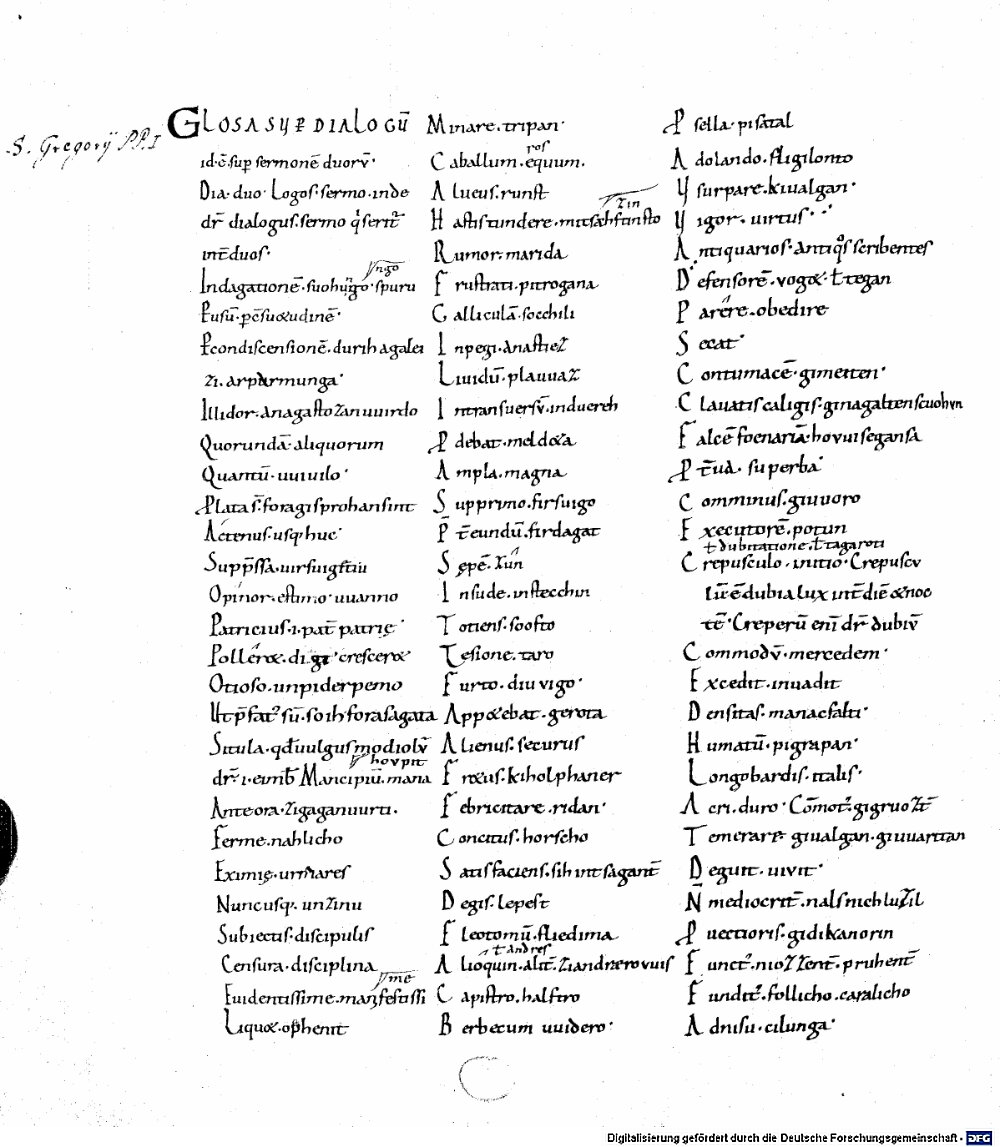 S. Gregorii PP. I
GLOSA SUP DIALOGŪ
id.ē sup sermonē duorū.
Dia. duo. Logos. sermo. inde
dr̄ dialogus. sermo q̇ serit᷑
int̄ duos.
yngo
Indagationē. suohungo. spuru
Pusū. p̄ c̄suetudinē.
Pcondiscensionē. durih agalei
zi. arparmunga.
Illidor. anagastozan uuirdo
Quorundā. aliquorum
Quantū. uuiuilo.
Plata s̄. foragisprohan sint
Actenus. usq; huc.
Supp̄ssa. uirsuigtiu
Opinor. estimo. uuanno
Patricius. i. pat̄ patrię.
Polleret. digi cresceret
Otioso. unpiderpemo
Ut p̄fat᷑ sū. so ih forasagata
Situla. qd̄ uulgus modiolū
houpit
dr̄. i. eimb̄ Mancipiū. mana
Ante ora. zigaganuurti.
Ferme. nahlicho
Eximię. urmares
Nuncusq;. unzinu
Subiectis. discipulis
Censura. disciplina
me
Euidentissime. manifestissi
Liquet. ophenit
Minare. tripan.
ros
Caballum. equum.
Alueus. runst
zin
Hastis tundere. mit sahstin sto
Rumor. marida
Frustrati. pitrogana
Galliculā. socchili
Inpegi. anastiez
Liuidū. plauuaz
In transuersū. in duereh
Pdebat. meldeta
Ampla. magna
Supprimo. firsuigo
P̄t̄eundū. firdagat
Sępē. zun
Insude. in stecchin
Totiens. so ofto
Tesione. taro
Furto. diuuigo.
Appetebat. gerota
Alienus. securus
Fretus. kiholphaner
Febricitare. ridan.
Concitus. horseho
Satisfaciens. sih intsagant̄
Degis. lepest
Fleotomū. fliedima
ł andres
Alioquin. alit̄. ziandrerouuis
Capistro. halftro
Berbecum uuidero.
Psella. pisatal
Adolando. fligilonto
Usurpare. kiualgan.
Uigor. uirtus.
Antiquarios. antiq̊s scribentes
Defensorē. voget. ł tegan
Parere. obedire
Secat.
Contumacē. gimeiten.
Clauatis caligis. ginagalten scuohun
Falcē foenariā. houuisegansa
Pt̄ua. superba.
Comminus. giuuoro
Executorē. potun
ł dubitatione. ł tagaroti
Crepusculo. initio. Crepuscu
lū. ē dubia lux int̄ diē et noc
tē. Creperū eni dr̄ dubiū
Commodū. mercedem.
Excedit. inuadit
Densitas. manacfalti.
Humatū. pigrapan.
Longobardis. italis.
Acri. duro. Cōmot᷑. gigruozt̄
Temerare. giualgan. giuuartian
Degunt. uiuit.
N̄ mediocrit̄. nals nich luzil
Puectioris. gidikanorin
Funct᷑. niozzent̄. pruhent̄
Fundit᷑. follicho. caralicho
Adnisu. cilunga.
Digitalisierung gefördert durch die Deutsche Forschungsgemeinschaft - DFG